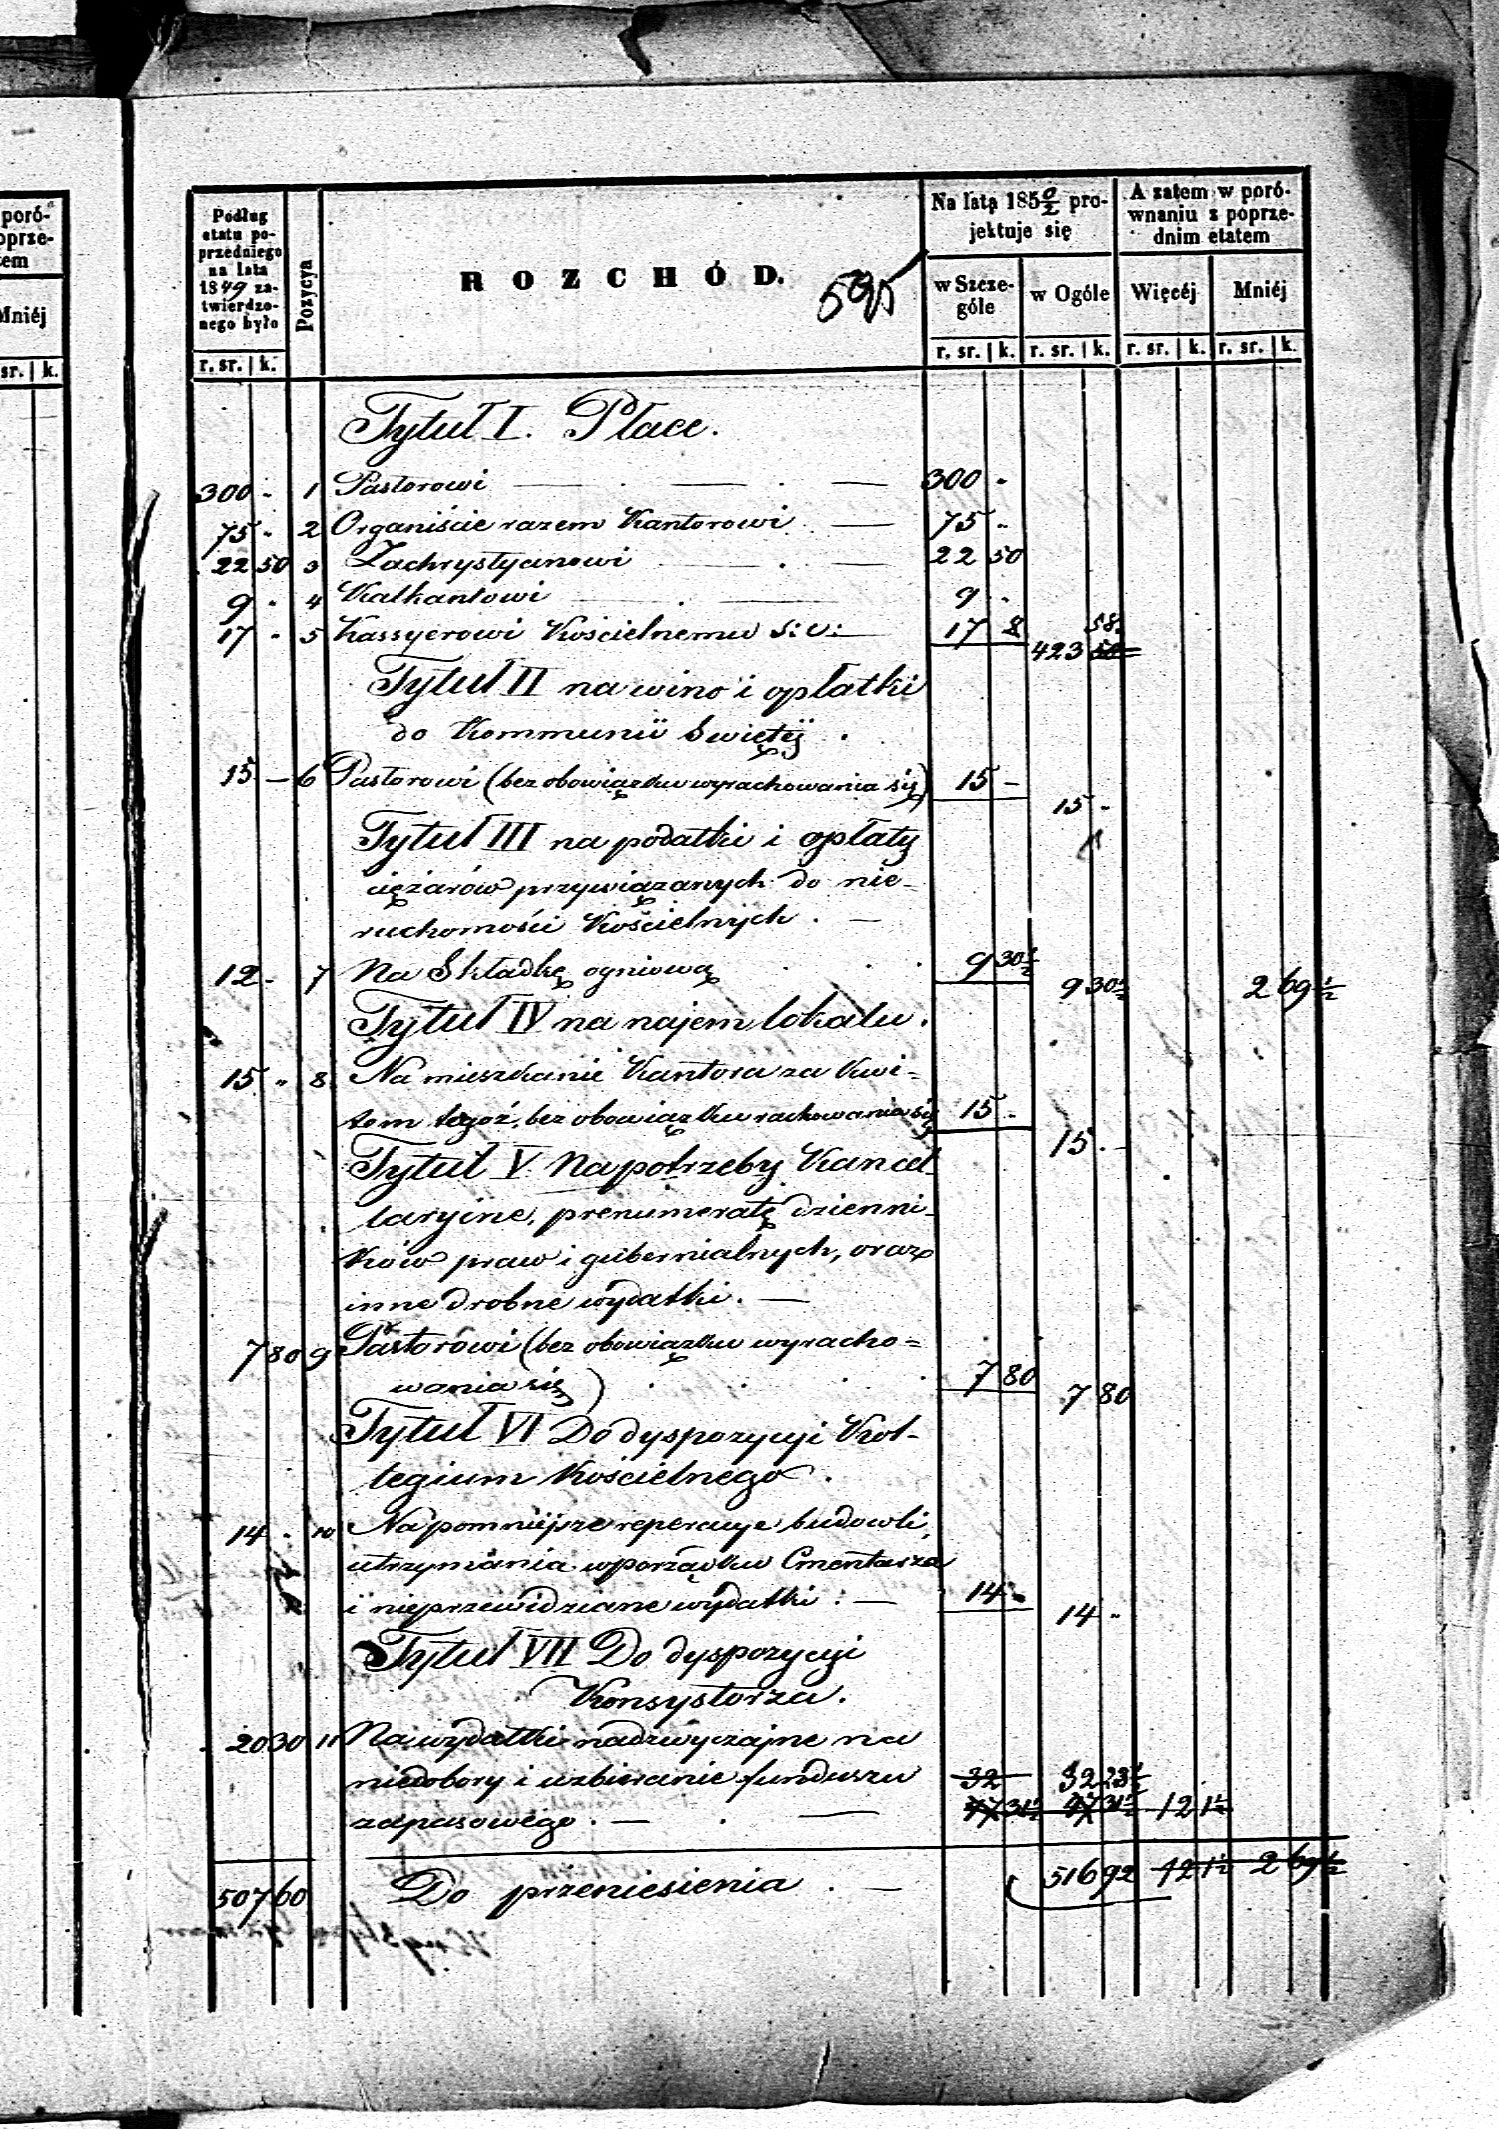 poró-
oprze-
em
Mniéj
sr. k.
Podług etatu poprzedniego na lata 1849 zatwierdzonego było
Pozycya
ROZCHÓD.
595
Na lata 185 0/2 projektuje się
A zatem w porównaniu z poprzednim etatem
w Szczególe
w Ogóle
Więcéj
Mniéj
r. sr. k. r. sr. k. r. sr. k. r. sr. k. r. sr. k.
Tytuł I. Płace.
300 - 1 Pastorowi 300 -
75 - 2 Organiście razem Kantorowi 75 -
22 50 3 Zachrystyanowi 22 50
9 - 4 Kalkantowi 9 -
17 - 5 Kassyerowi Kościelnemu 17 8
58
423 50
Tytuł II na wino i opłatki
do Kommunii Swiętéj.
15 - 6 Pastorowi (bez obowiązku wyrachowania się) 15 -
15 -
Tytuł III na podatki i opłaty
ciężarów przywiązanych do nie-
ruchomości Kościelnych. -
12 - 7 Na Składkę ogniową 9 30 1/2
9 30 1/2 2 69 1/2
Tytuł IV na najem lokalu.
15 - 8 Na mieszkanie Kantora za kwi-
tem tegoż, bez obowiązku rachowania się 15 -
15 -
Tytuł V. Na potrzeby Kancel-
laryine, prenumeratę dzienni-
ków praw i gubernialnych, oraz
inne drobne wydatki. -
7 80 9 Pastorowi (bez obowiązku wyracho=
wania się) 7 80
7 80
Tytuł VI Do dyspozycyi Kol-
legium Kościelnego.
14 - 10 Na pomniejsze reperacye budowli,
utrzymania w porządku Cmentarza
i nieprzewidziane wydatki: - 14 -
14 -
Tytuł VII Do dyspozycyi
Konsystorza.
20 30 11 Na wydatki nadzwyczajne na
niedobory i uzbieranie funduszu 32 32 23 1/2
zapasowego. - 31 1/2 31 1/2 12 1 1/2
507 60 Do przeniesienia. - 516 92 12 1 1/2 2 69 1/2